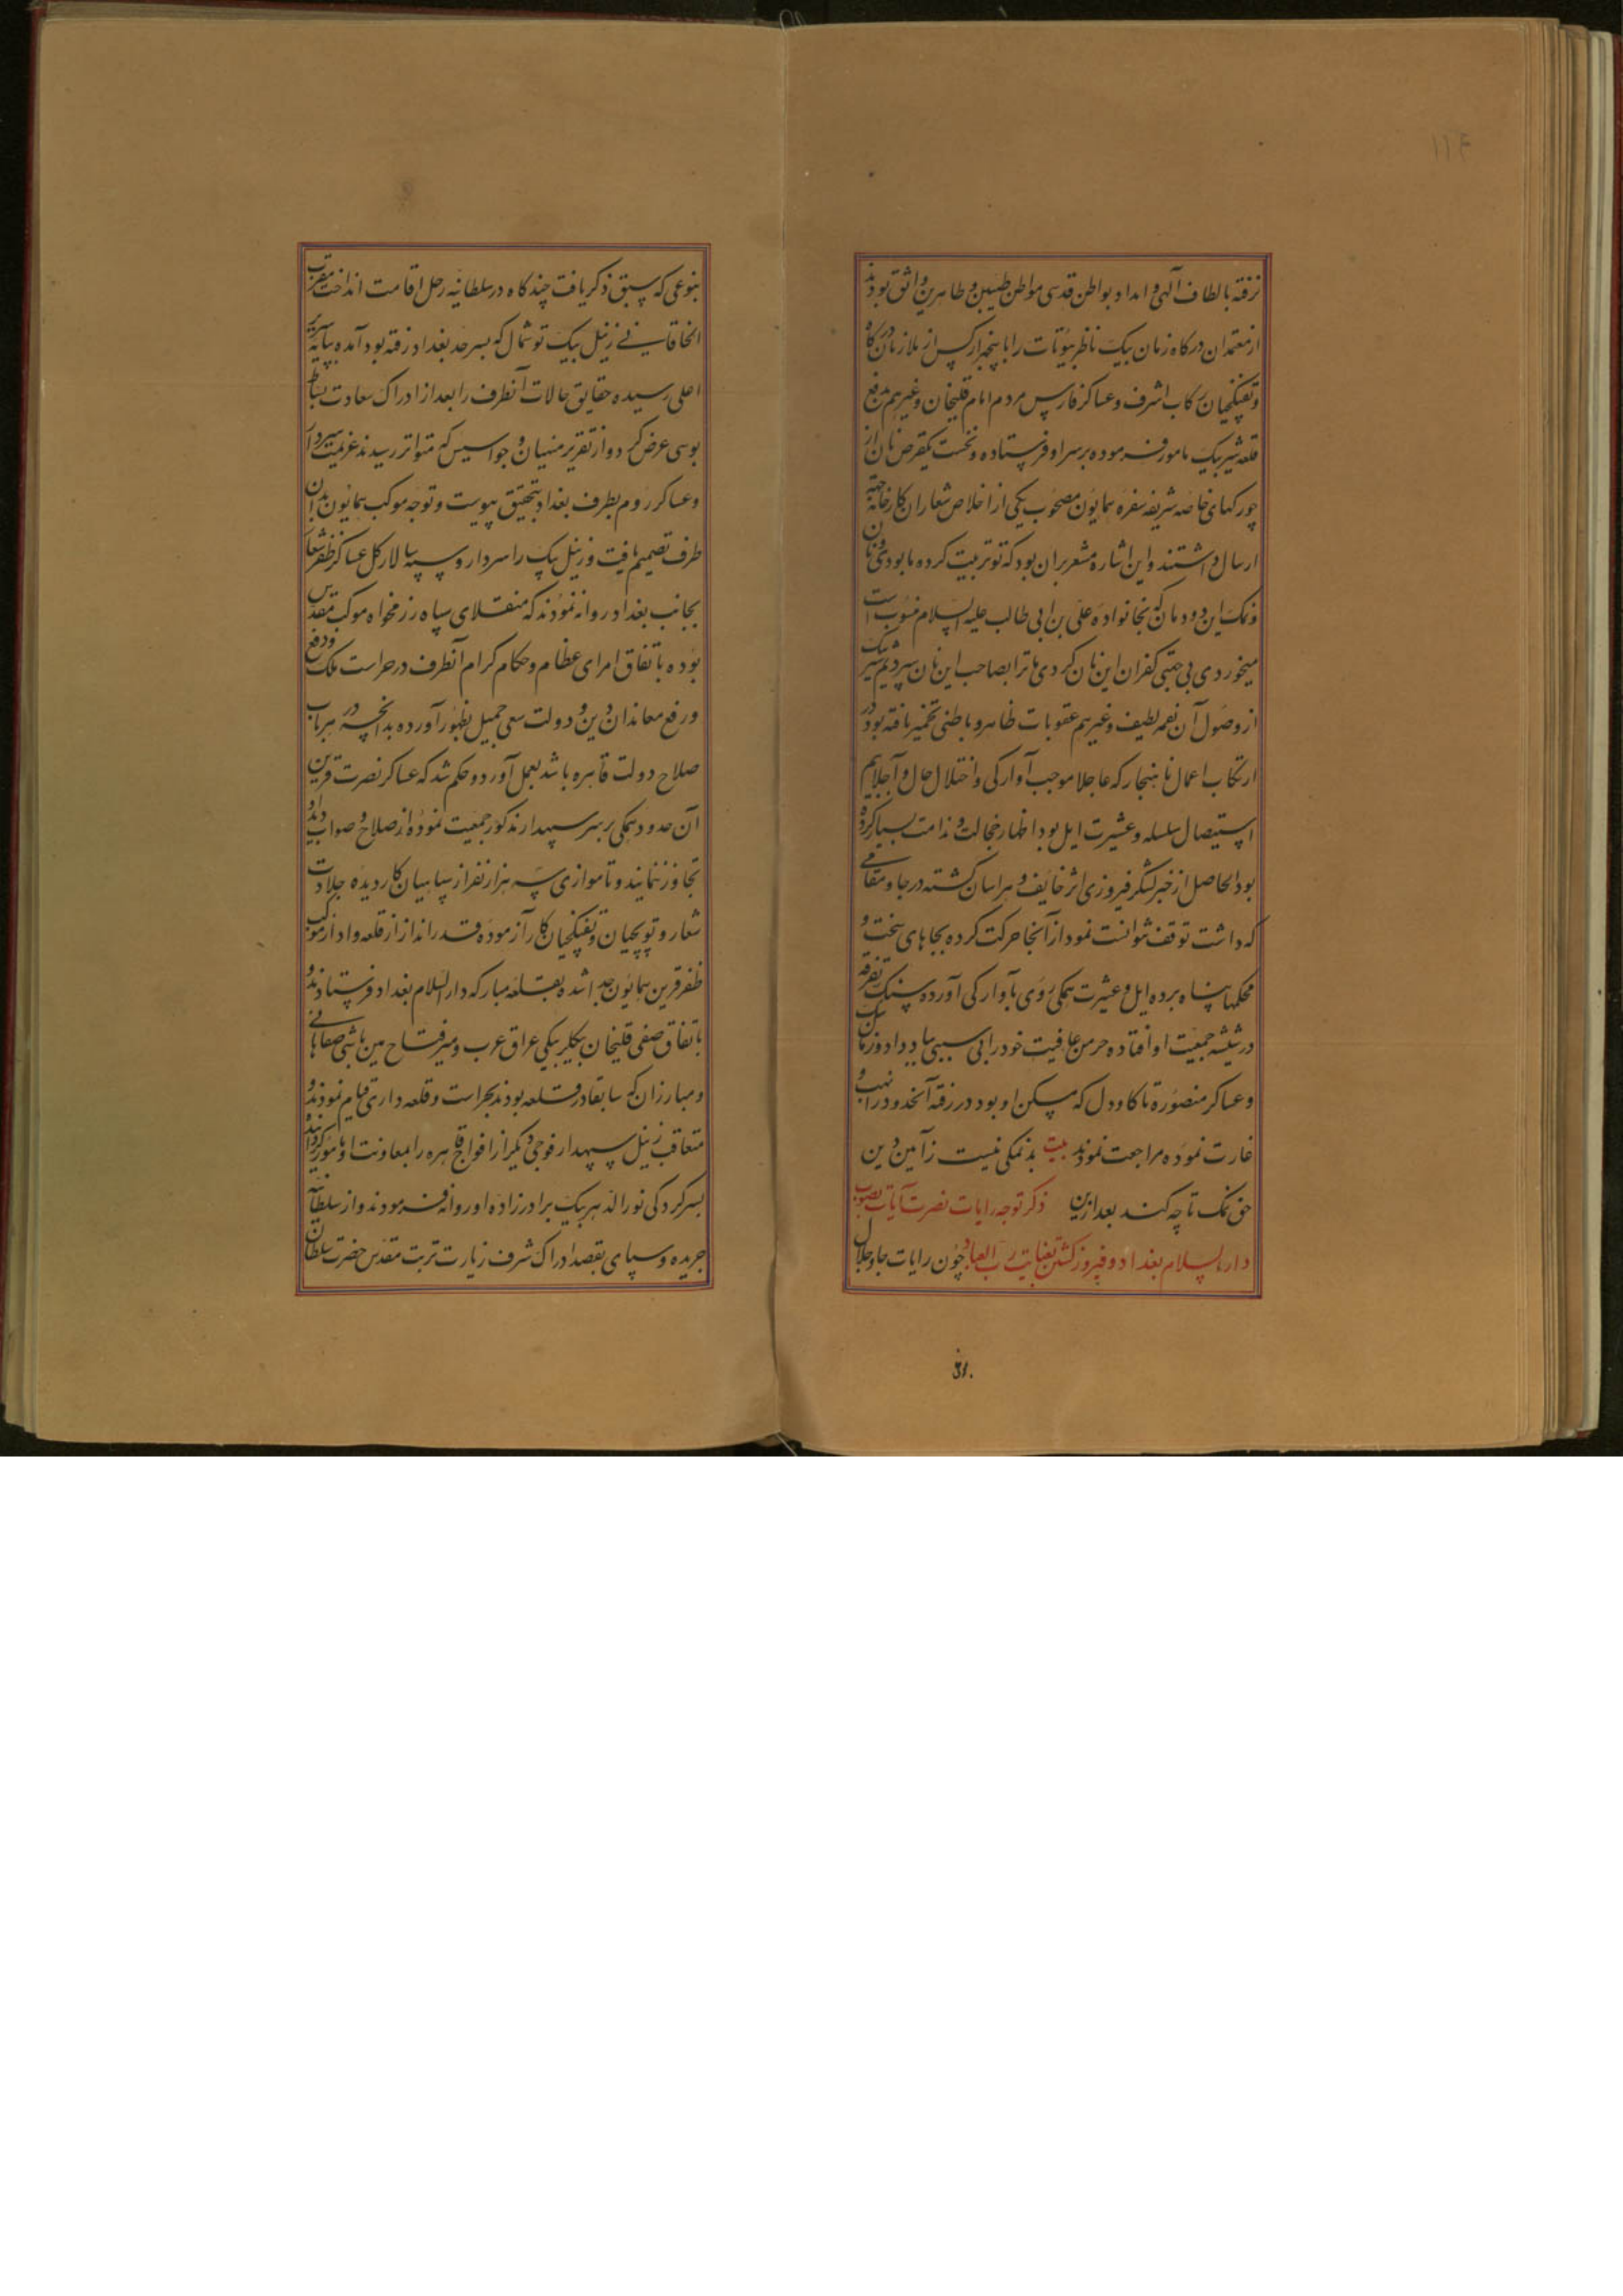 ۱۱۴
نرفته بالطاف الهی و امداد بواطن قدسی مواطن طیبین و طاهرین واثق بودند
از معتمدان درکاه زمان بیک ناظر بیوتات را با پنجهزار کس از ملازمان درکاه
و تفنکچیان رکاب اشرف و عساکر فارس مردم امام قلیخان و غیرهم بدفع
قلعه شیر بیک مامور فرموده بر سر او فرستاده و نخست یکقرص نان از
چورکهای خاصه شریفه سفره همایون مصحوب یکی از اخلاص شعاران کارخانه جهة
ارسال داشتند و این اشاره مشعر بران بود که تو تربیت کرده ما بودی و نان
و نمک این دودمان که بخانواده علی بن ابی طالب علیه السلام منسوب است
میخوردی بی جهتی کفران این نان کردی ما ترا بصاحب این نان سپردیم شیر بیک
از وصول آن نعمه لطیف و غیرهم عقوبات ظاهر و باطنی تخمیر یافته بود در
ارتکاب اعمال ناهنجار که عاجلا موجب آوارکی و اختلال حال و آجلا بیم
استیصال سلسله و عشیرت ایل بود اظهار خجالت و ندامت بسیار کرده
بود الحاصل از خبر لشکر فیروزی اثر خایف و هراسان کشته در جا و مقامی
که داشت توقف نتوانست نمود از آنجا حرکت کرده بجاهای سخت و
محکمها پناه برده ایل و عشیرت همکی روی بآوارکی آورده سنک تفرقه
در شیشه جمعیت او افتاده خرمن عافیت خود را بی سببی بباد داد و زمان بیک
و عساکر منصوره تا کاودل که مسکن او بود در رفته آنحدود را نهب و
غارت نموده مراجعت نمودند بیت بد نمکی نیست ز آیین دین
حق نمک تا چه کند بعد ازین ذکر توجه رایات نصرت آیات بصوب
دار السلام بغداد و فیروز کشتن بعنایت رب العباد چون رایات جاه و جلال
بنوعی که سبق ذکر یافت چند کاه در سلطانیه رحل اقامت انداخت مقرب
الخاقانی زینل بیک توشمال که بسرحد بغداد رفته بود آمده بپایه سریر
اعلی رسیده حقایق حالات آنطرف را بعد از ادراک سعادت بساط
بوسی عرض کرد و از تقریر منهیان و جواسیس که متواتر رسیدند عزیمت سردار
و عساکر روم بطرف بغداد بتحقیق پیوست و توجه موکب همایون بدان
طرف تصمیم یافت و زینل بیک را سردار و سپهسالار کل عساکر ظفر شعار
بجانب بغداد روانه نمودند که منقلای سپاه رزمخواه موکب مقدس
بوده باتفاق امرای عظام و حکام کرام آنطرف در حراست ملک و دفع
و رفع معاندان دین و دولت سعی جمیل بظهور آورده بدانچه در هر باب
صلاح دولت قاهره باشد بعمل آورد و حکم شد که عساکر نصرت قرین
آن حدود همکی بر سر سپهدار مذکور جمعیت نموده از صلاح و صواب دید او
تجاوز ننمایند و تا موازی سه هزار نفر از سپاهیان کار دیده جلادت
شعار و توپچیان و تفنکچیان کار آزموده قدر انداز از قلعه و ادار موکب
ظفر قرین همایون جدا شده بقلعه مبارکه دار السلام بغداد فرستادند و
باتفاق صفی قلیخان بیکلربیکی عراق عرب و میر فتاح مین باشی صفاهانی
و مبارزان که سابقا در قلعه بودند بحراست و قلعه داری قیام نمودند و
متعاقب زینل سپهدار فوجی دیکر از افواج قاهره را بمعاونت او مامور کردانیدند
بسرکردکی نور الدهر بیک برادر زاده او روانه فرمودند و از سلطانیه
جریده و سپای بقصد ادراک شرف زیارت تربت مقدس حضرت سلطان